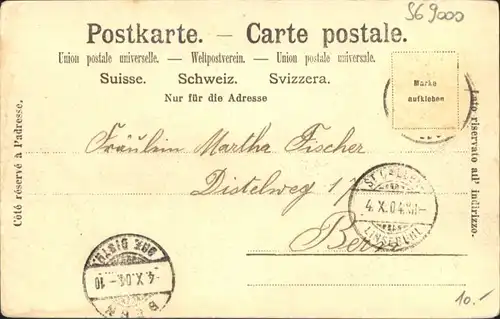 S69000
Postkarte. — Carte postale.
Union postale universelle. — Weltpostverein. — Union postale universale.
Suisse. Schweiz. Svizzera.
Nur für die Adresse
Marke
aufkleben
Côté réservé à l'adresse.
Lato riservato all' indirizzo.
Fräulein Martha Fischer
Distelweg
Bern
4.X.04
4.X.04-10
BERN
10.-